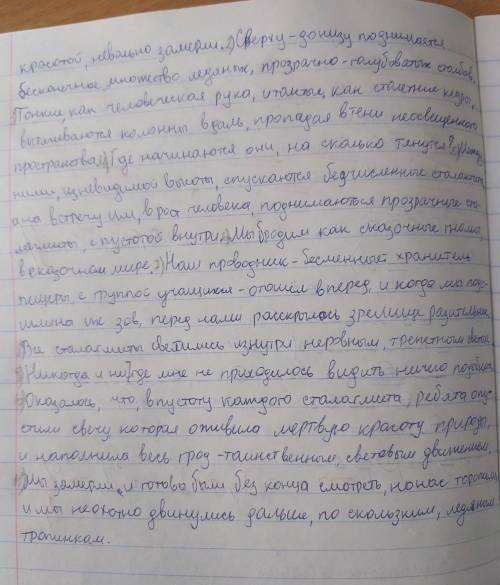 красотой, невольно замерли. 2) Сверху-донизу поднимается
бесконечное множество ледяных, прозрачно-голубоватых столбов,
Тонкие, как человеческая рука, и толстые, как столетние кедры,
вытягиваются колонны вдаль, пропадая в тени неосвещенного
пространства. Где начинаются они, на сколько тянутся? Между
ними, из невидимой высоты, спускаются бесчисленные сталактиты,
а на встречу им, в рост человека, поднимаются прозрачные ста
лагмиты, с пустотой внутри. Мы бродим как сказочные гномы,
в сказочном мире. 7) Наш проводник-бесменный хранитель
пещеры, с группой учащихся-отошёл вперед, и когда мы подо
шли на их зов, перед нами расскрылось зрелище
Все сталагмиты светились изнутри неровным, трепетным светом.
Никогда и нигде мне не приходилось видеть ничего подобного
Оказалось, что, в пустоту каждого сталагмита, ребята опу
стили свечу, которая оживила мертвую красоту природы,
и наполнила весь грод-таинственным, световым движением.
Мы замерли, и готовы были без конца смотреть, но нас торопили,
и мы неохотно двинулись дальше, по скользким, ледяным
тропинкам.